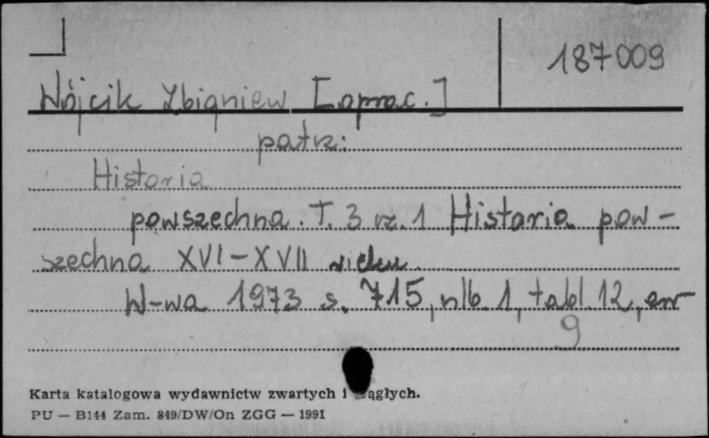 187009
Wójcik Zbigniew [oprac.]
patrz:
Historia
powszechna. T. 3 cz. 1 Historia pow-
szechna XVI-XVII wieku.
W-wa 1973 s. 715, nlb. 1, tabl. 12, err
9
Karta katalogowa wydawnictw zwartych i ciągłych.
PU — B144 Zam. 849/DW/On ZGG — 1991